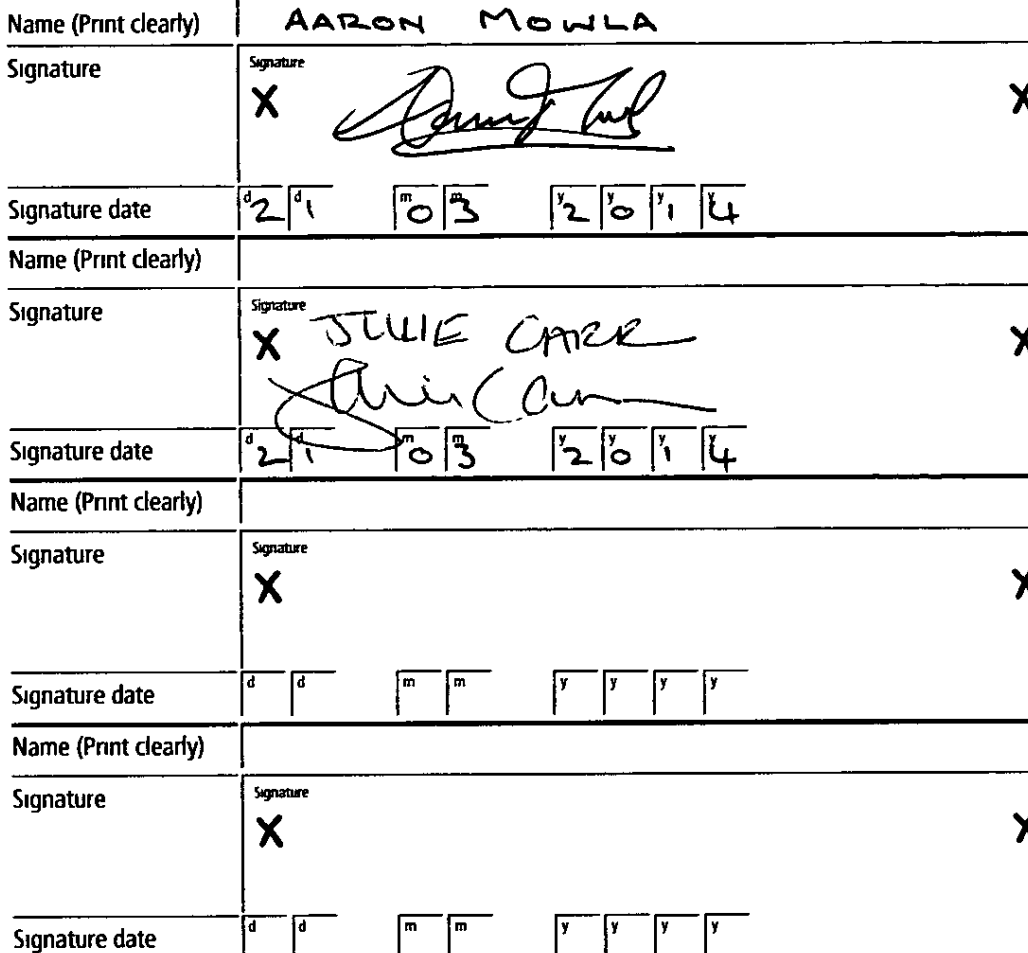 Name (Print clearly) AARON MOWLA
Signature Signature
X X
Signature date d2 d1 m0 m3 y2 y0 y1 y4
Name (Print clearly)
Signature Signature
X JULIE CARR X
Julie Carr
Signature date d2 d1 m0 m3 y2 y0 y1 y4
Name (Print clearly)
Signature Signature
X X
Signature date d d m m y y y y
Name (Print clearly)
Signature Signature
X X
Signature date d d m m y y y y